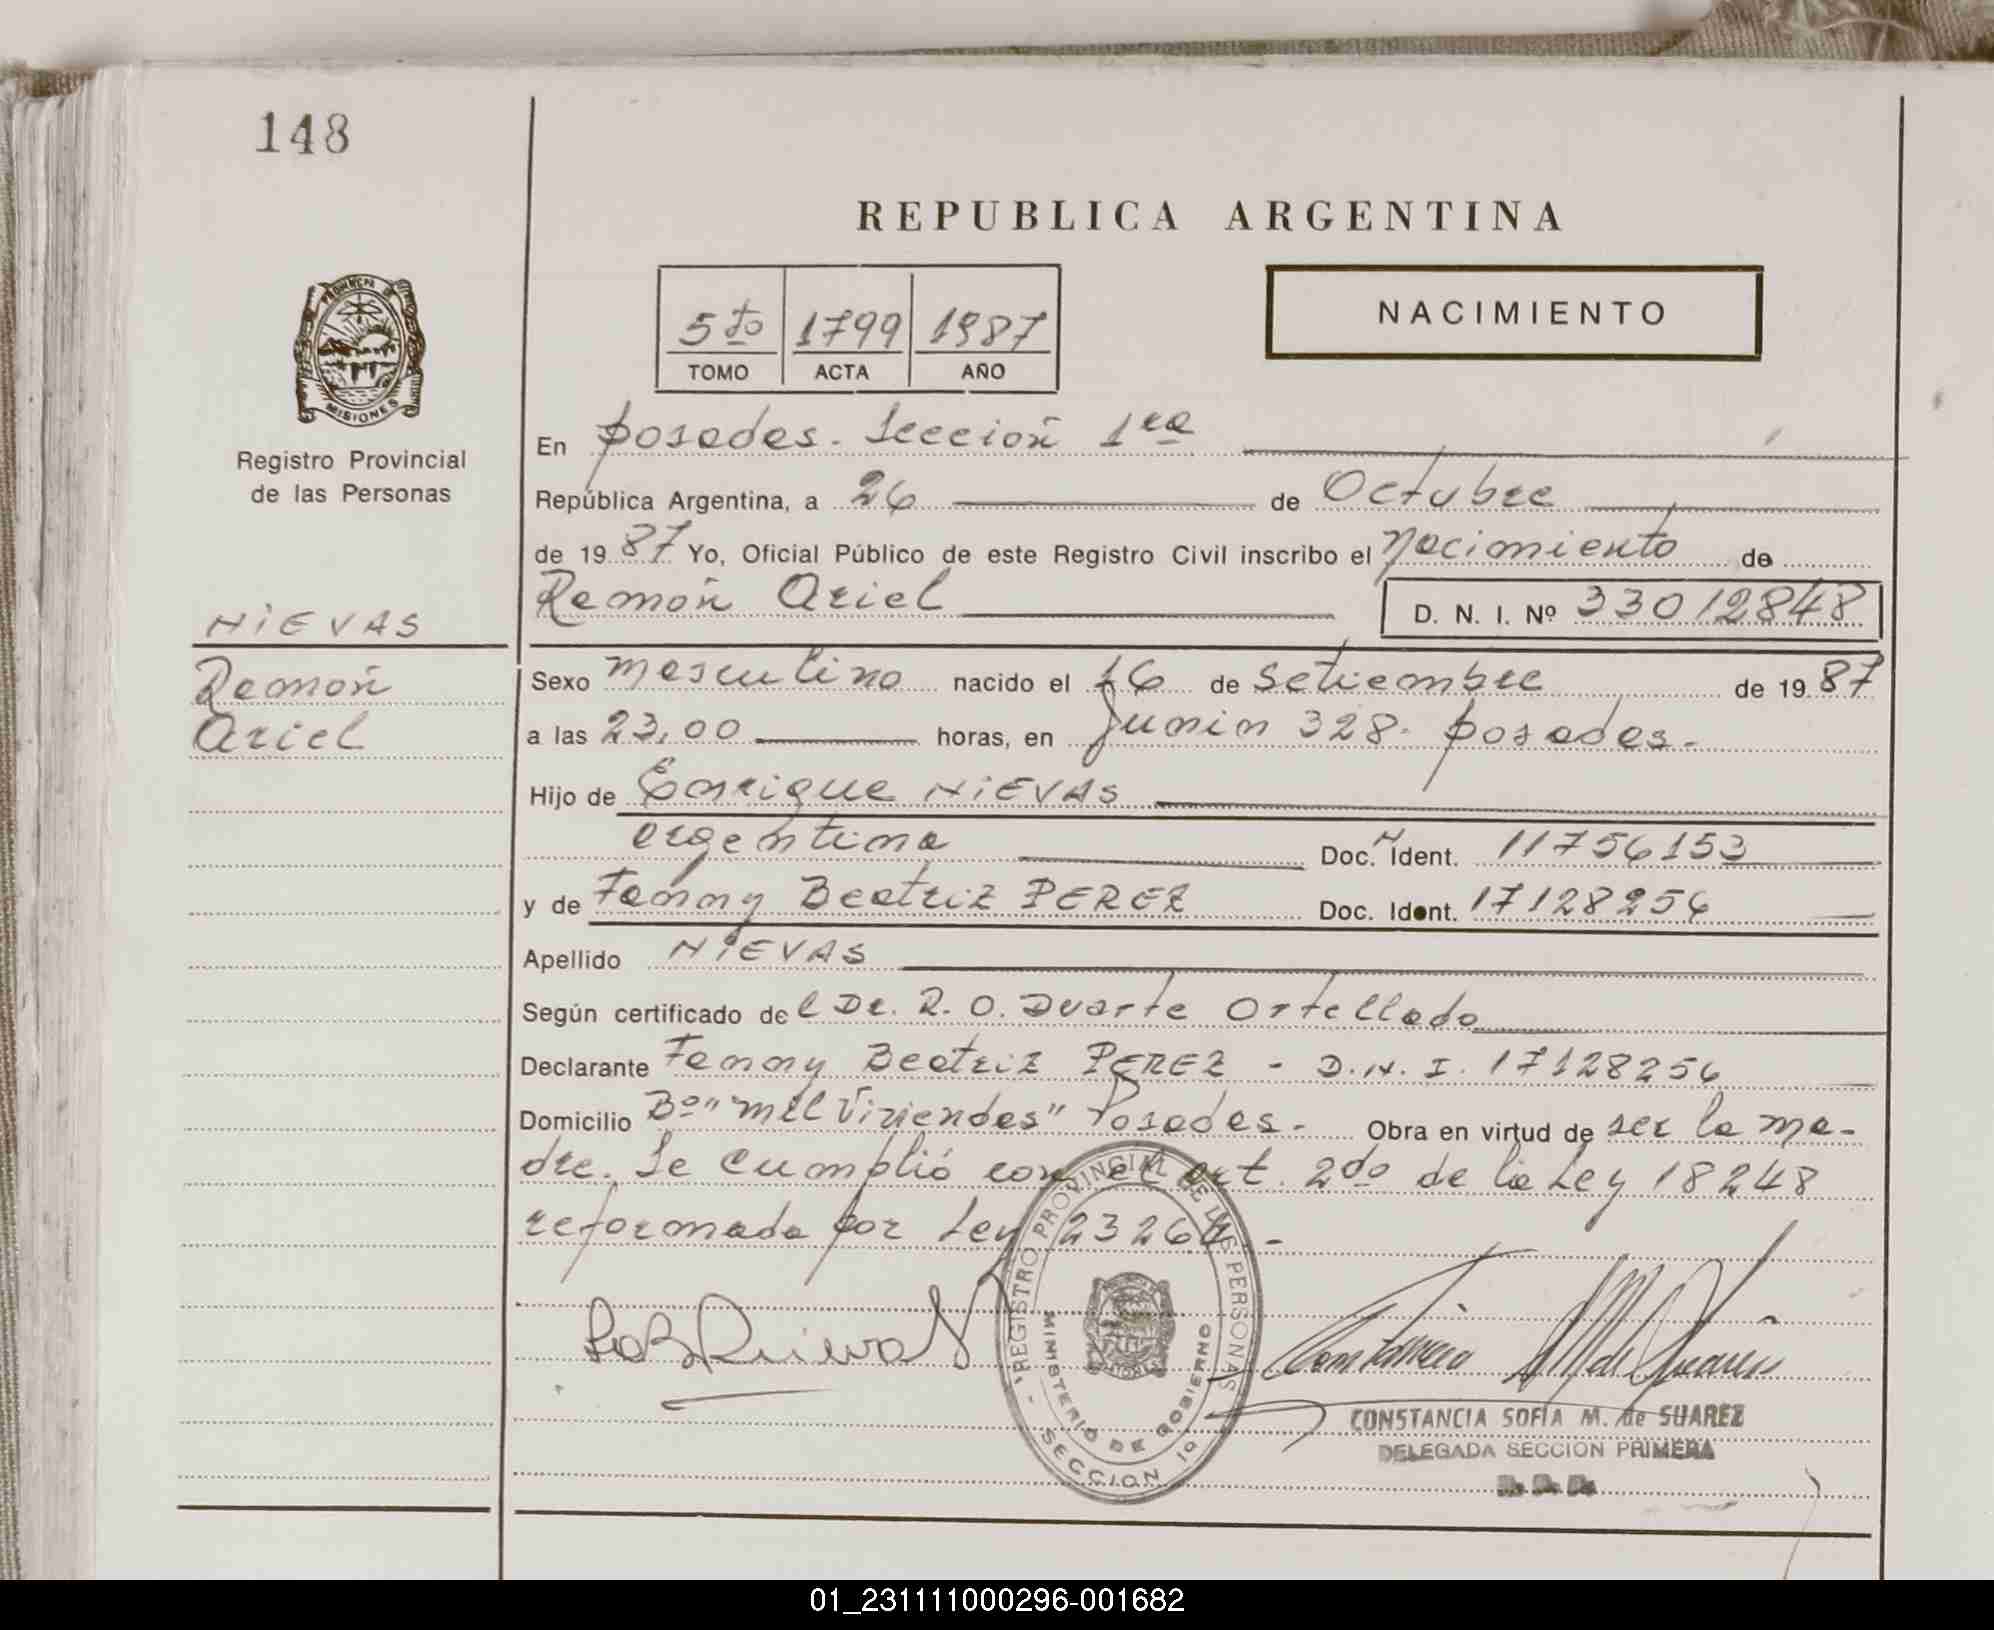 148
REPUBLICA ARGENTINA
5to 1799 1987
TOMO ACTA AÑO
NACIMIENTO
PROVINCIA DE
MISIONES
Registro Provincial
de las Personas
En Posadas. Sección 1ra
República Argentina, a 26 de Octubre
de 1987 Yo, Oficial Público de este Registro Civil inscribo el Nacimiento de
Ramón Ariel D. N. I. Nº 33012848
NIEVAS
Ramón
Ariel
Sexo masculino nacido el 16 de Setiembre de 1987
a las 23,00 horas, en Junin 328. Posadas.-
Hijo de Enrique NIEVAS
argentina Doc. N Ident. 11756153
y de Fanny Beatriz PEREZ Doc. Ident. 17128256
Apellido NIEVAS
Según certificado del Dr. R. O. Duarte Ortellado
Declarante Fanny Beatriz PEREZ - D.N.I. 17128256
Domicilio Bº "Mil Viviendas" Posadas.- Obra en virtud de ser la ma-
dre. Se cumplió con el art. 2do de la Ley 18248
reformada por Ley 23264.-
REGISTRO PROVINCIAL DE LAS PERSONAS
MINISTERIO DE GOBIERNO
SECCION 1º
CONSTANCIA SOFIA M. de SUAREZ
DELEGADA SECCION PRIMERA
01_231111000296-001682